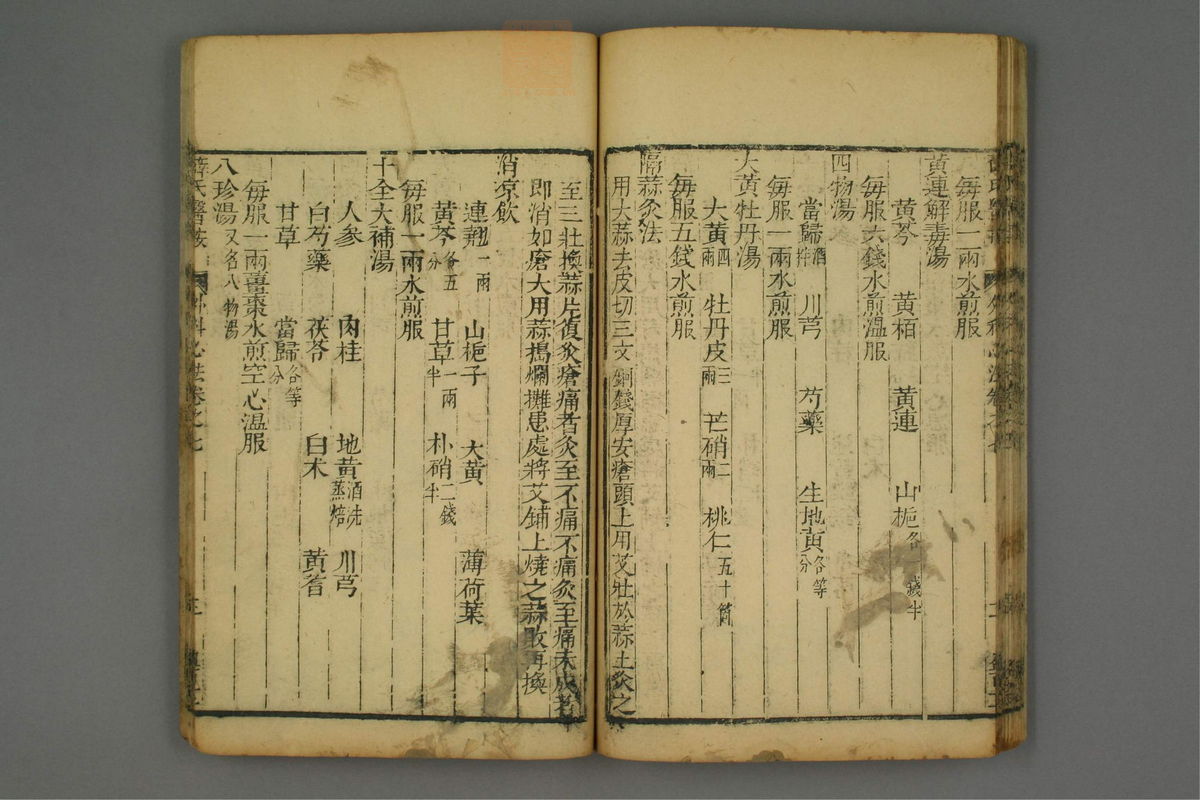 每服一兩水煎服
黃連解毒湯
黃芩 黃栢 黃連 山梔各一錢半
每服六錢水煎温服
四物湯
當歸酒拌 川芎 芍藥 生地黃各等分
每服一兩水煎服
大黃牡丹湯
大黃四兩 牡丹皮三兩 芒硝二兩 桃仁五十箇
每服五錢水煎服
隔蒜灸法
用大蒜去皮切三文銅錢厚安瘡頭上用艾壯於蒜上灸之
至三壯換蒜片復灸瘡痛者灸至不痛不痛灸至痛未成者
即消如瘡大用蒜搗爛攤患處將艾鋪上燒之蒜敗再換
消凉飲
連翹一兩 山梔子 大黃 薄荷葉
黃芩各五分 甘草一兩半 朴硝二錢半
每服一兩水煎服
十全大補湯
人參 肉桂 地黃酒洗蒸焙 川芎
白芍藥 茯苓 白朮 黃耆
甘草 當歸各等分
每服一兩薑棗水煎空心温服
八珍湯又名八物湯
薛氏醫按 外科心法卷之七